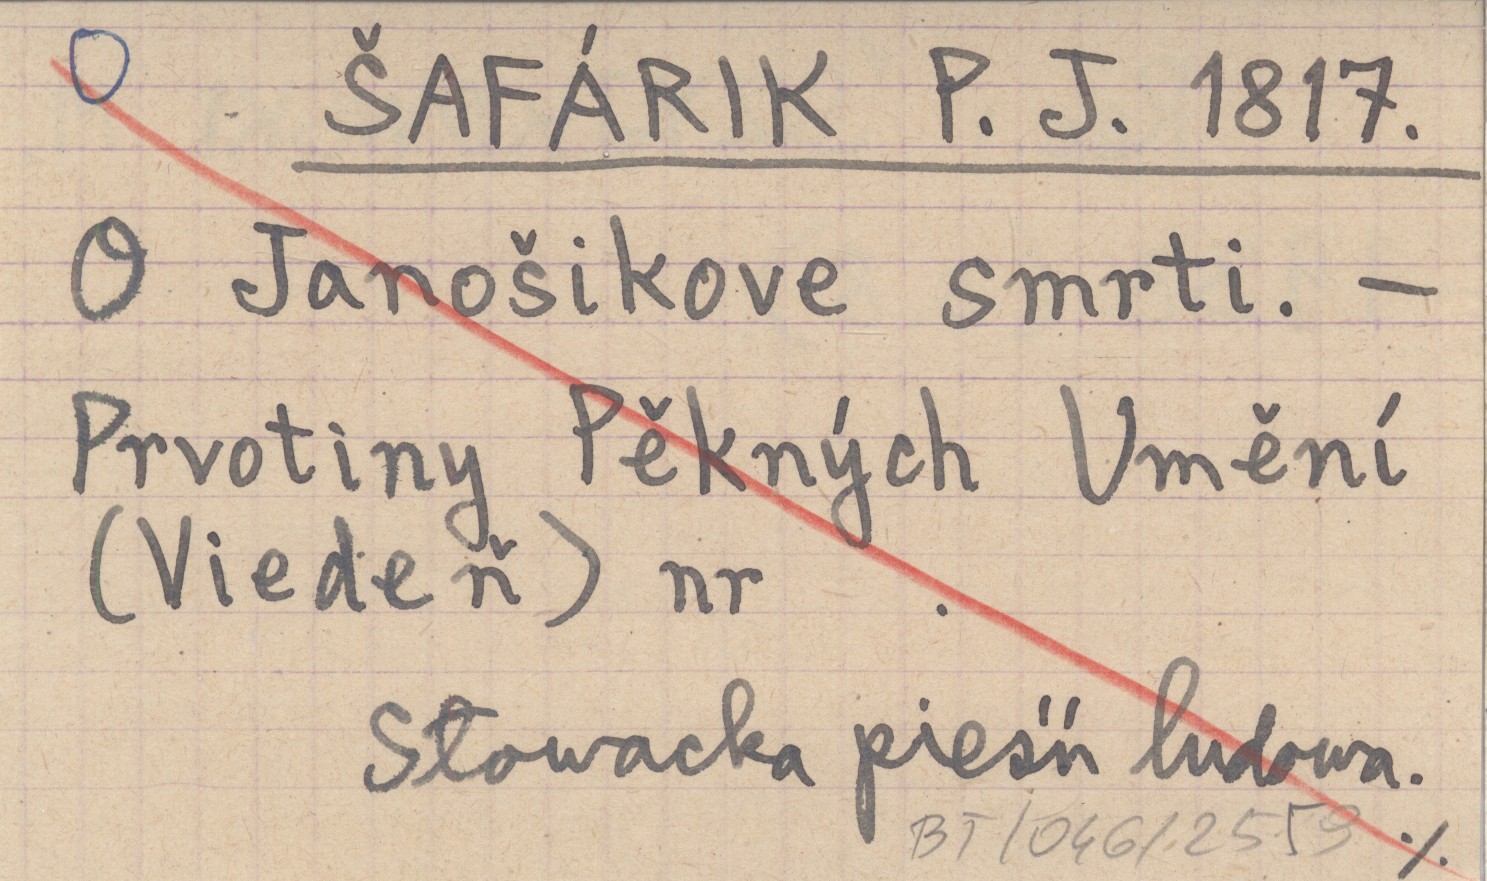 O ŠAFÁRIK P. J. 1817.
O Janošikove smrti. –
Prvotiny Pěkných Umění
(Viedeň) nr .
Słowacka pieśń ludowa.
BT/046/2559 ./.